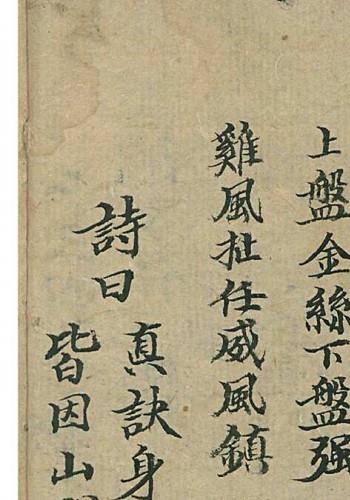 上盤金絲下盤强
雞風扯任威風鎮
詩曰
真訣身
皆因山